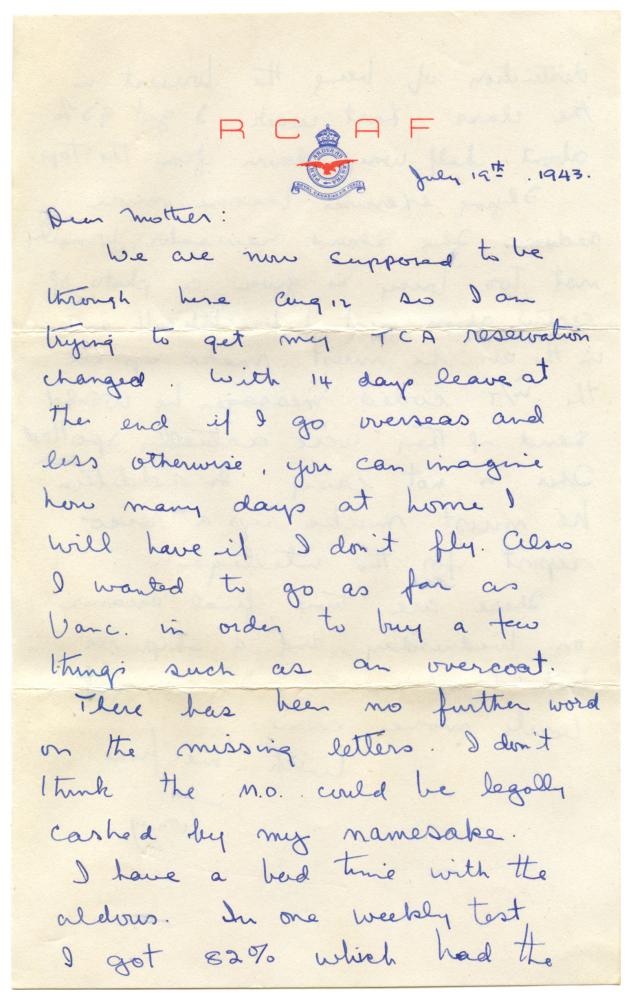 RCAF
July 19th. 1943.
Dear Mother:
We are now supposed to be
through here Aug 12 so I am
trying to get my TCA reservation
changed. With 14 days leave at
the end if I go overseas and
less otherwise, you can imagine
how many days at home I
will have if I don't fly. Also
I wanted to go as far as
Vanc. in order to buy a few
things such as an overcoat.
There has been no further word
on the missing letters. I don't
think the M.O. could be legally
cashed by my namesake.
I have a bad time with the
aldous. In one weekly test
I got 82% which had the